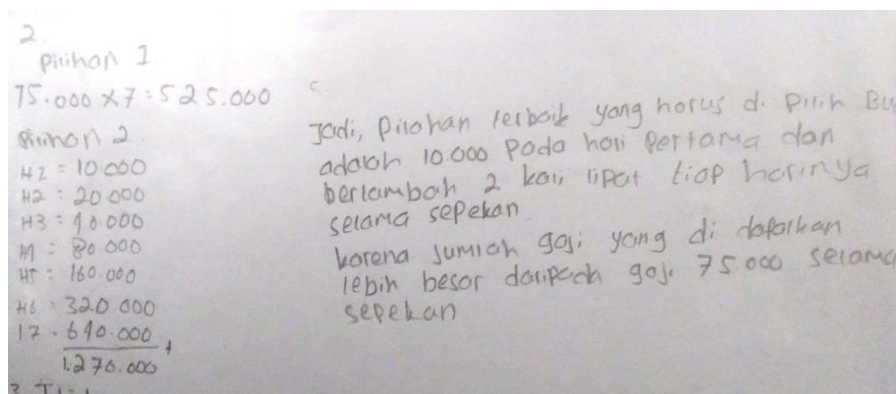 2.
Pilihan 1
75.000 x 7 = 525.000
Pilihan 2
H1 = 10.000
H2 = 20.000
H3 = 40.000
H4 = 80.000
H5 = 160.000
H6 = 320.000
17 = 640.000 +
1.270.000
Jadi, Pilihan terbaik yang harus di Pilih Bu
adalah 10.000 Pada hari Pertama dan
bertambah 2 kali lipat tiap harinya
selama sepekan
karena jumlah gaji yang di dapatkan
lebih besar daripada gaji 75.000 selama
sepekan